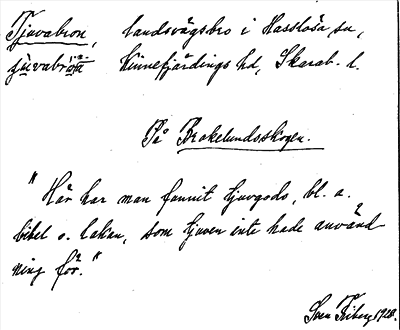 Tjuvabron, landsvägsbro i Hasslösa sn,
Kinnefjärdings hd, Skarab. l.
På Brakelundsskogen.
"Här har man funnit tjuvgods, bl. a.
bibel o. lakan, som tjuven inte hade använd
ning för."
Sven Friberg 1928.